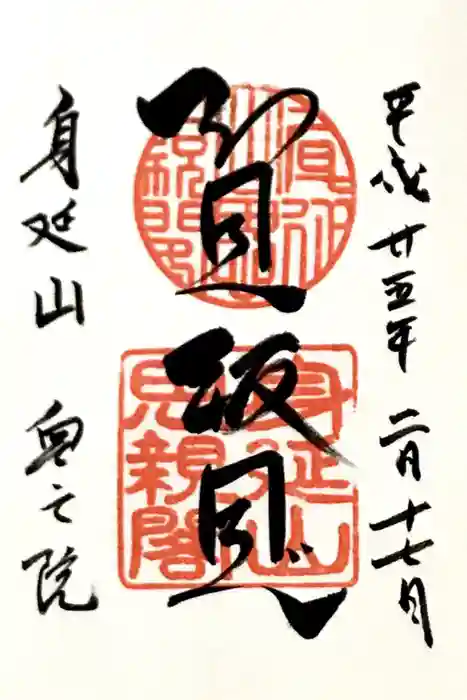 平成廿五年 二月十七日
知恩報恩
身延山
思親閣
身延山 奥之院